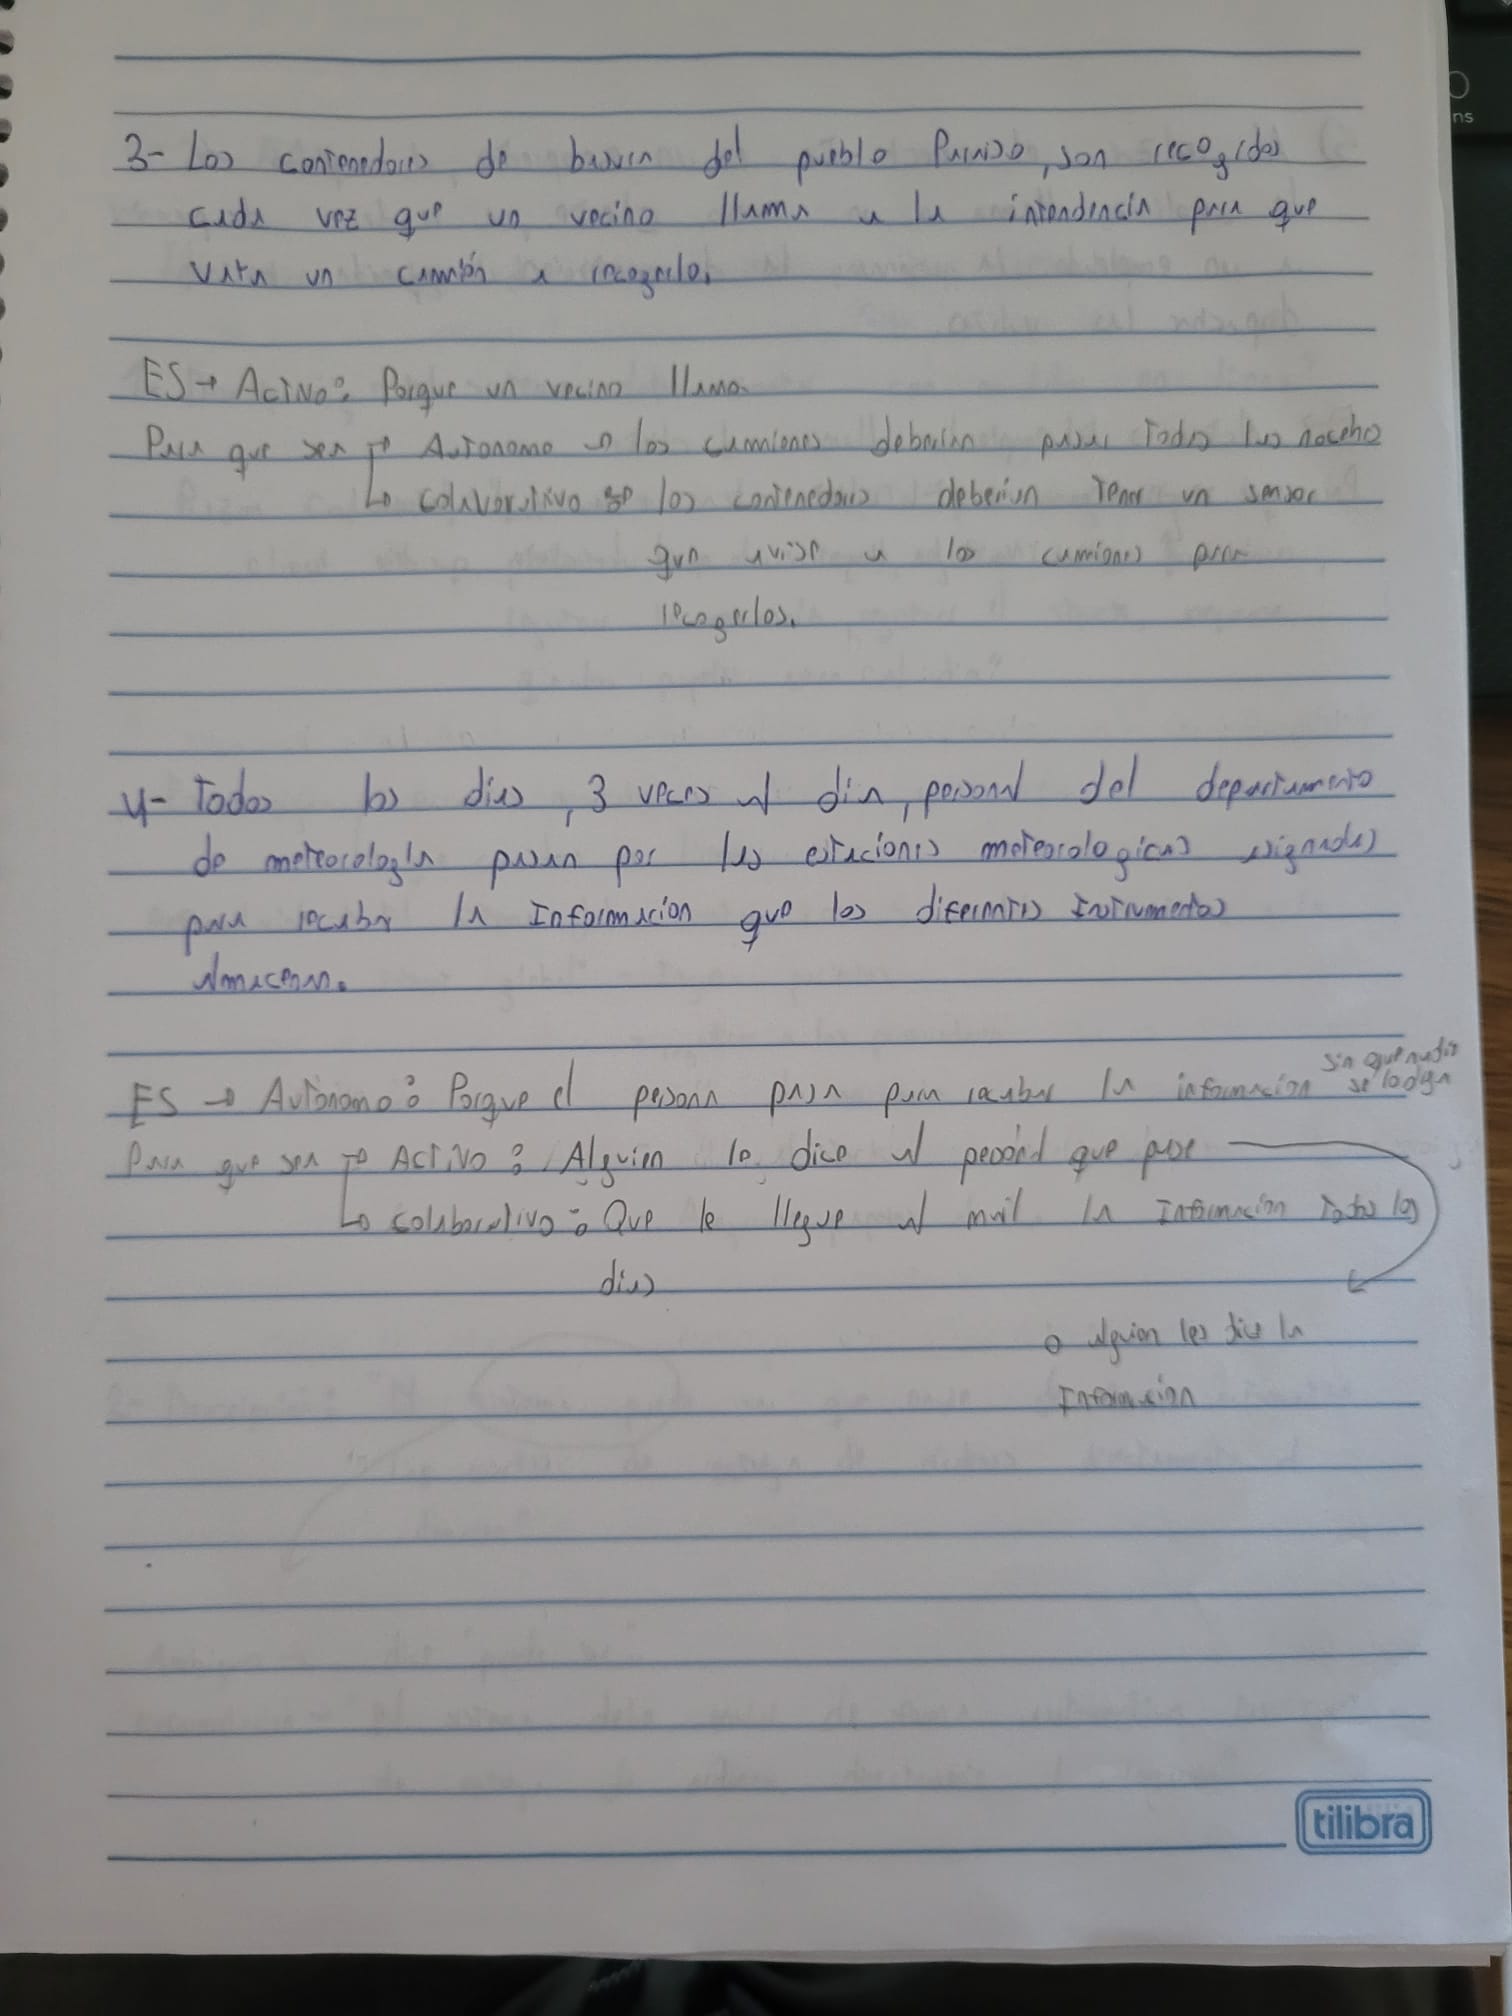 3- Los contenedores de basura del pueblo Paraiso, son recogidos
cada vez que un vecino llama a la intendencia para que
vaya un camión a recogerlo.
ES → Activo: Porque un vecino llama.
Para que sea → Autonomo → los camiones deberian pasar todas las noches
↳ colavorativo → los contenedores deberian tener un sensor
que avise a los camiones para
recogerlos.
4- Todos los dias, 3 veces al dia, personal del departamento
de meteorología pasan por las estaciones meteorologicas asignadas
para recabar la Información que los diferentes Instrumentos
almacenan.
sin que nadie
ES → Autónomo: Porque el persona pasa para recabar la información se lo diga
Para que sea → Activo: Alguien le dice al personal que pase
↳ colaborativo: Que le llegue al mail la Información todos los
dias
o alguien les dice la
Información
tilibra